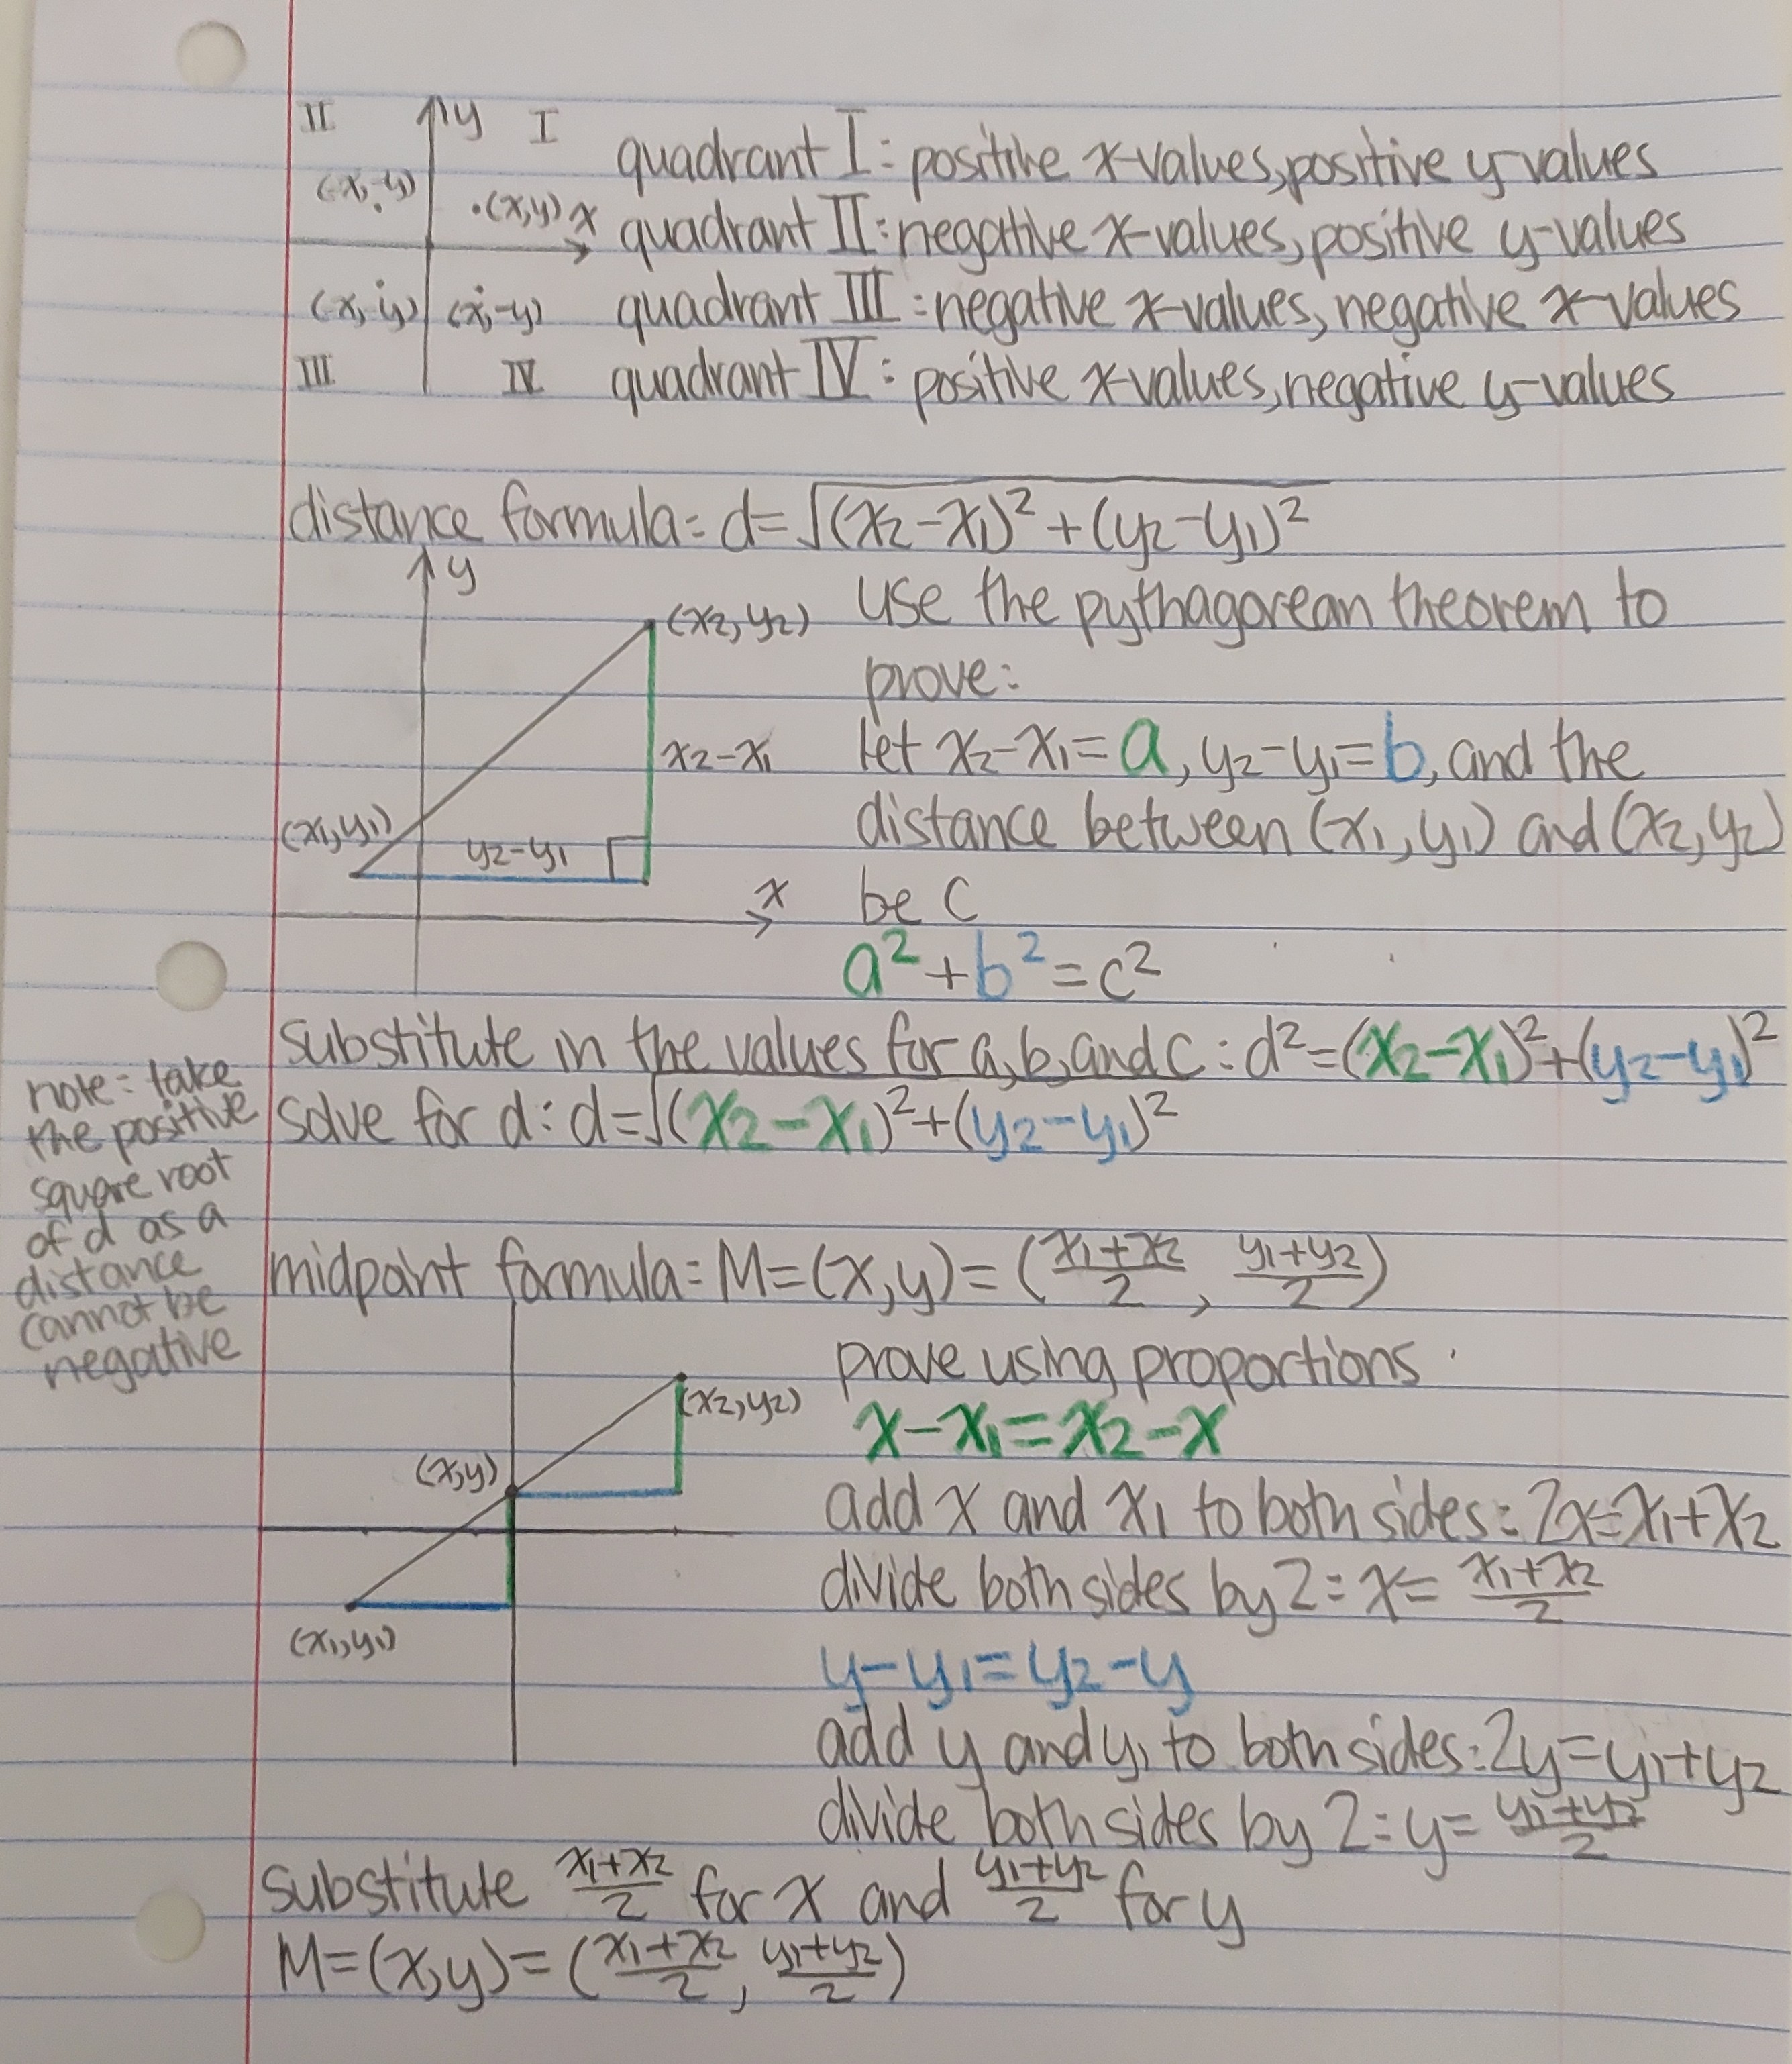 II y I
(-x,-y) (x,y) x
(x,y) (x,-y)
III IV
quadrant I: positive x-values, positive y values
quadrant II: negative x-values, positive y-values
quadrant III: negative x-values, negative x-values
quadrant IV: positive x-values, negative y-values
distance formula: d=√(x₂-x₁)²+(y₂-y₁)²
y
(x₂,y₂)
x₂-x₁
(x₁,y₁)
y₂-y₁
x
use the pythagorean theorem to
prove:
let x₂-x₁=a, y₂-y₁=b, and the
distance between (x₁,y₁) and (x₂,y₂)
be c
a²+b²=c²
substitute in the values for a, b, and c: d²=(x₂-x₁)²+(y₂-y₁)²
solve for d: d=√(x₂-x₁)²+(y₂-y₁)²
note: take
the positive
square root
of d as a
distance
cannot be
negative
midpoint formula: M=(x,y)=(x₁+x₂/2, y₁+y₂/2)
(x₂,y₂)
(x,y)
(x₁,y₁)
prove using proportions
x-x₁=x₂-x
add x and x₁ to both sides: 2x=x₁+x₂
divide both sides by 2: x=x₁+x₂/2
y-y₁=y₂-y
add y and y₁ to both sides: 2y=y₁+y₂
divide both sides by 2: y=y₁+y₂/2
substitute x₁+x₂/2 for x and y₁+y₂/2 for y
M=(x,y)=(x₁+x₂/2, y₁+y₂/2)